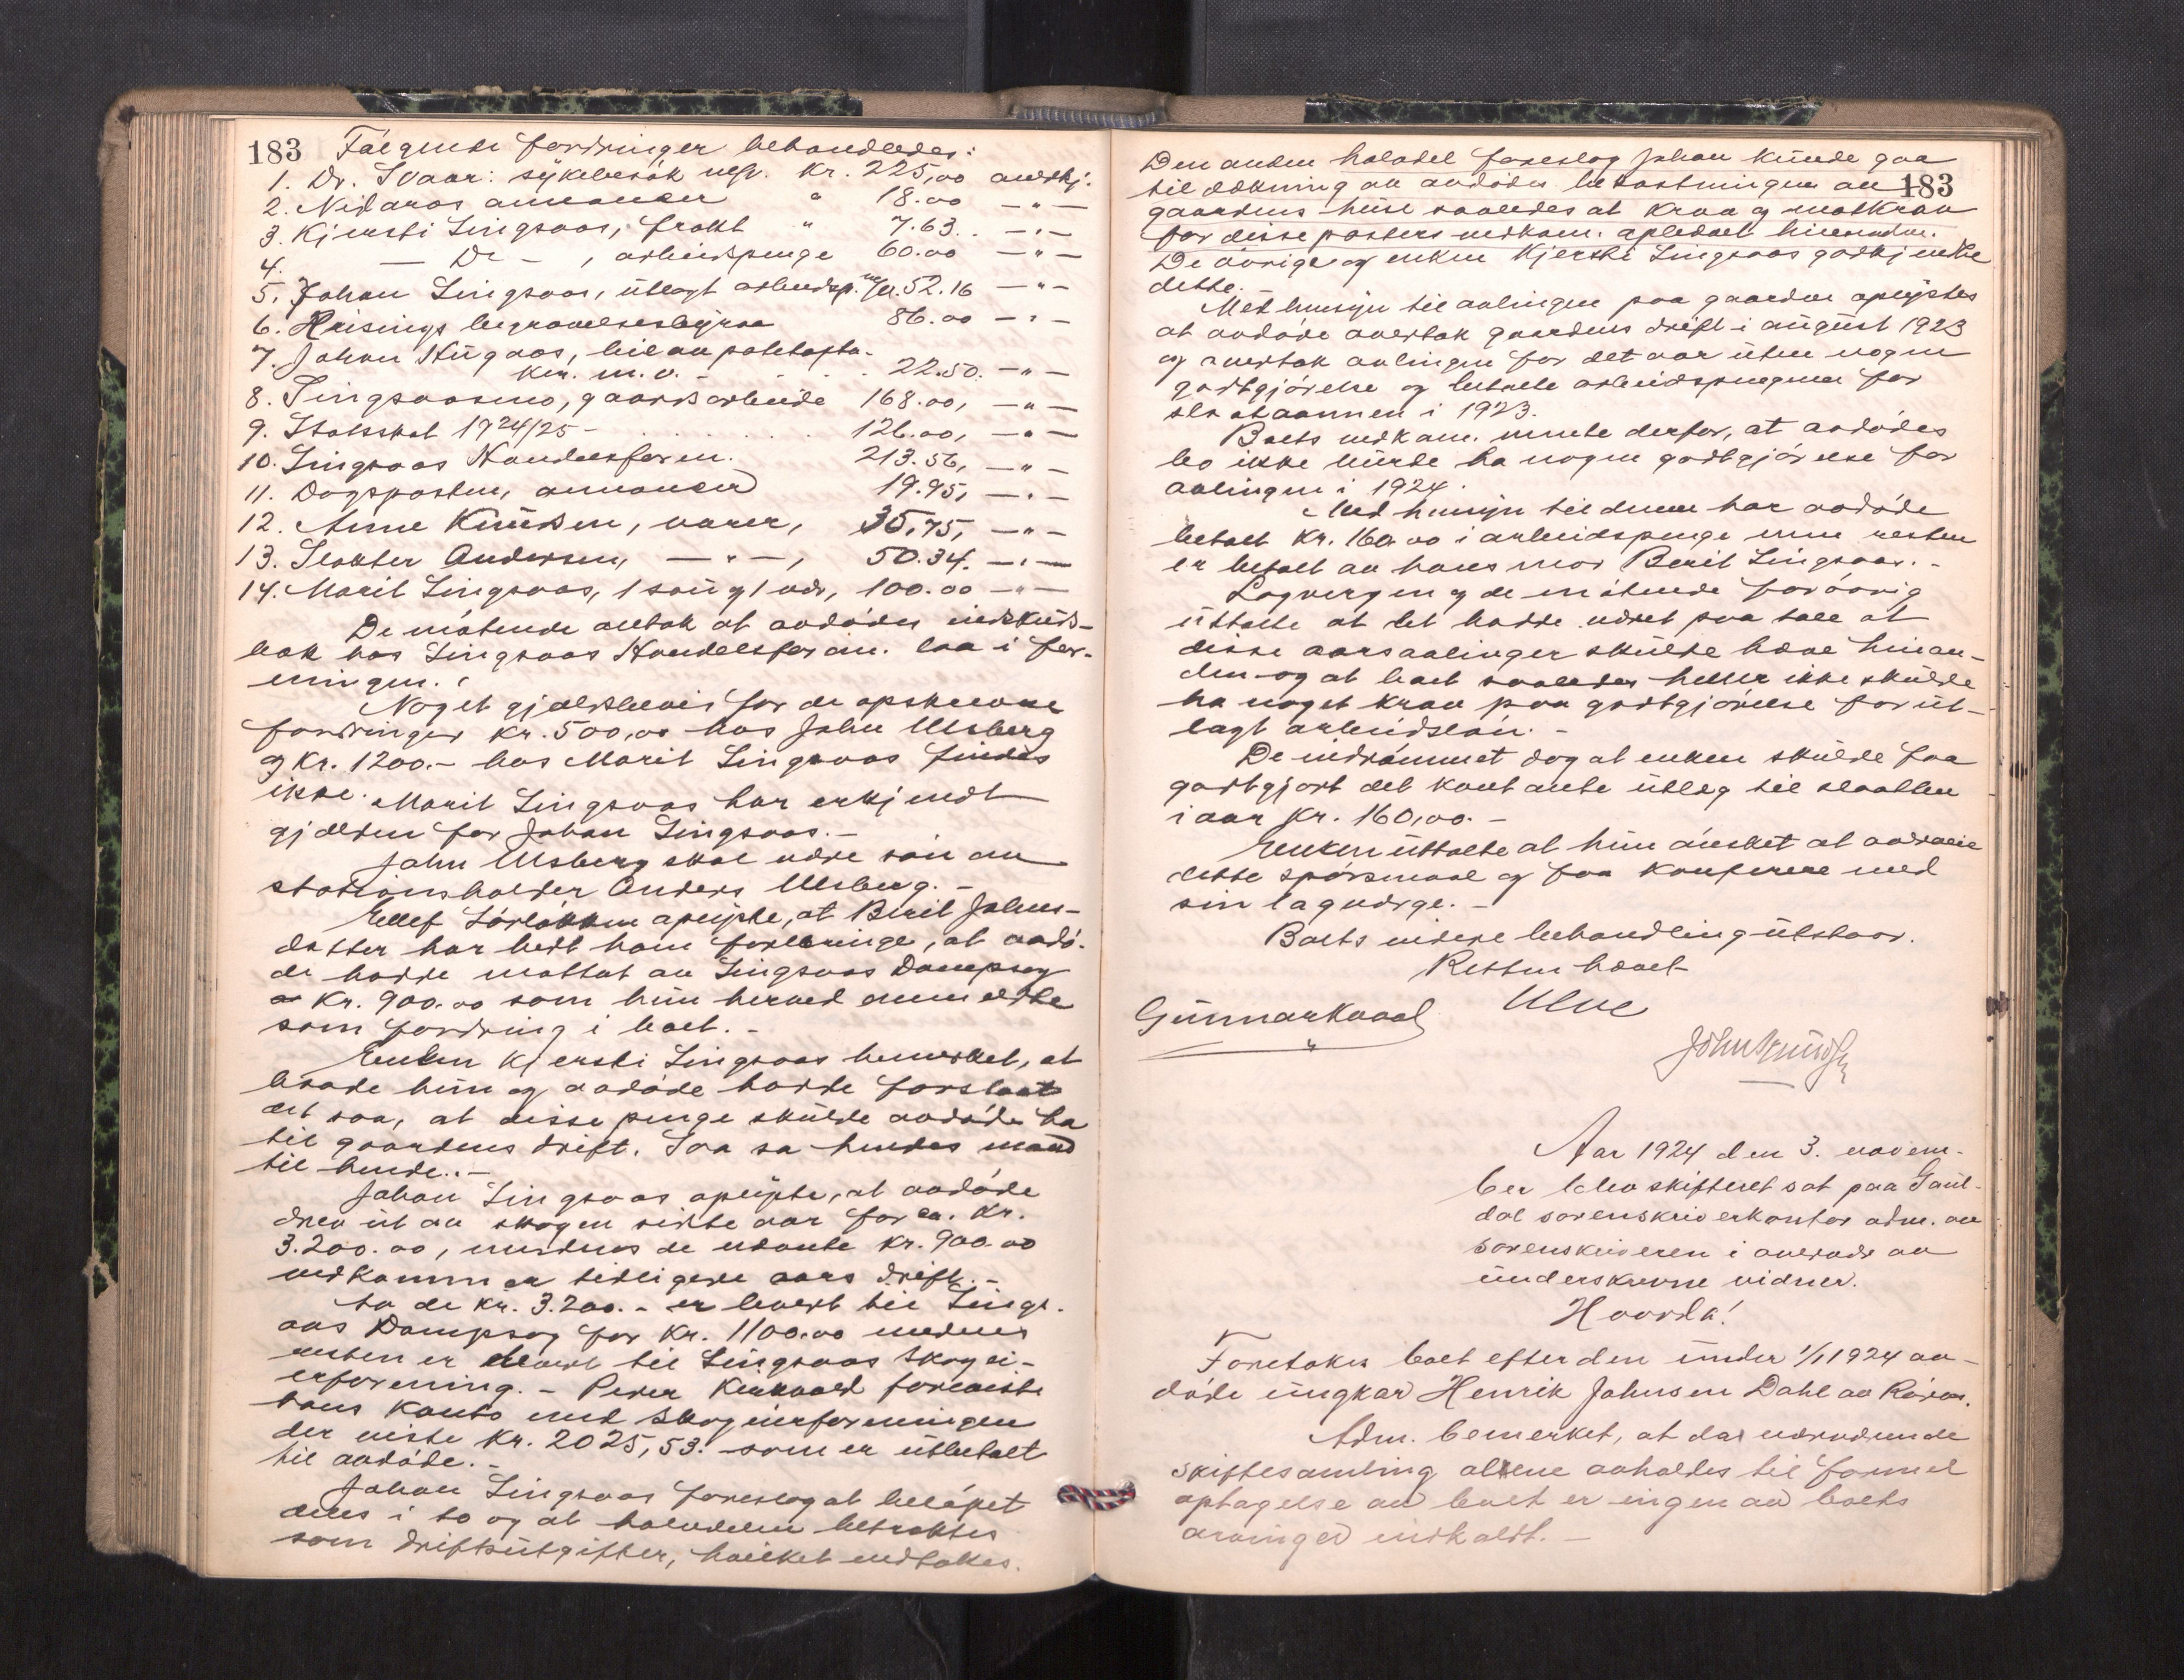 183 Følgende fordringer behandledes:
1. Dr. Svaar: sykebesøk resp. Kr. 225,00 anerkj.
2. Nidaros annoncer " 18.00 —"—
3. Kjersti Singsaas, frakt " 7.63. —"—
4. — Do — , arbeidspenge 60.00 —"—
5. Johan Singsaas, utlagt arbeidsp. Kr. 52.16 —"—
6. Heisings begravelsesbyraa 86.00 —"—
7. Johan Haugaas, leie av
m.v. - 22.50. —"—
8. Singsaasmo, gaardsarbeide 168.00, —"—
9. Statsskat 1924/25 - 126.00, —"—
10. Singsaas Handelsforen. 213.56, —"—
11. Dagsposten, annoncer 19.95, —"—
12. Anne Knudsen, varer, 35,75, —"—
13. Slakter Andersen, —"—, 50.34. —"—
14. Marit Singsaas, 1 sau og 1 vær, 100.00 —"—
De møtende antok at avdødes indskuds-
bok hos Singsaas Handelsforen. laa i for-
eningen.
Noget gjældsbevis for de opskrevne
fordringer Kr. 500,00 hos John Ulsberg
og Kr. 1200.- hos Marit Singsaas findes
ikke. Marit Singsaas har erkjendt
gjælden for Johan Singsaas.-
John Ulsberg skal være søn av
stationsholder Anders Ulsberg.-
Ellef Sørløkken oplyste, at Berit Johns-
datter har bedt ham forebringe, at avdø-
de hadde mottat av Singsaas Dampsag
Kr. 900.00 som hun herved anmeldte
som fordring i boet.-
Enken Kjersti Singsaas bemerket, at
baade hun og avdøde hadde forstaat
det saa, at disse penge skulde avdøde ha
til gaardens drift. Saa sa hendes mand
til hende.-
Johan Singsaas oplyste, at avdøde
drev ut av skogen sidste aar for ca. Kr.
3.200.00, medens de nævnte Kr. 900.00
vedkommer tidligere aars drift.-
Av de Kr. 3.200.- er levert til Sings-
aas Dampsag for Kr. 1100.00 medens
resten er levert til Singsaas Skogei-
erforening.- Peder Kirkvold foreviste
hans konto med Skogeierforeningen
der viste Kr. 2025,53. som er utbetalt
til avdøde.-
Johan Singsaas foreslog at beløpet
deles i to og at halvdelen betraktes
som driftsutgifter, hvilket vedtokes.
Den anden halvdel foreslog Johan kunde gaa
til dækning av avdødes bekostninger av 183
gaardens huse saaledes at krav og motkrav
for disse posters vedkom. opledes hinanden.
De øvrige og enken Kjersti Singsaas godkjendte
dette.
Med hensyn til avlingen paa gaarden oplystes
at avdøde overtok gaardens drift i august 1923
og overtok avlingen for det aar uten nogen
godtgjørelse og betalte arbeidspengene for
slaataannen i 1923.
Boets vedkom. mente derfor, at avdødes
bo ikke burde ha nogen godtgjørelse for
avlingen i 1924.
Med hensyn til denne har avdøde
betalt Kr. 160.00 i arbeidspenge mens resten
er betalt av hans mor Berit Singsaas.-
Lagvergen og de møtende forøvrig
uttalte at det hadde været paa tale at
disse aarsavlinger skulde hæve hinan-
den og at boet saaledes heller ikke skulde
ha noget krav paa godtgjørelse for ut-
lagt arbeidsløn.-
De indrømmet dog at enken skulde faa
godtgjort det kontante utlæg til slaatten
i aar Kr. 160,00.-
Enken uttalte at hun ønsket at overveie
dette spørsmaal og faa konferere med
sin lagverge.-
Boets videre behandling utstaar.
Retten hævet
Gunnar Kvaal Ulve
John
Aar 1924 den 3. novem-
ber blev skifteret sat paa Gaul-
dal sorenskriverkontor adm. av
sorenskriveren i overvær av
underskrevne vidner.
Hvorda!
Foretokes boet efter den under 1/1 1924 av-
døde ungkar Henrik Johnsen Dahl av Røros.
Adm. bemerket, at da nærværende
skiftesamling alene avholdes til formel
optagelse av boet er ingen av boets
arvinger indkaldt.-